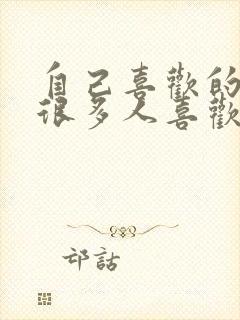 自己喜歡的
很多人喜歡
邙話